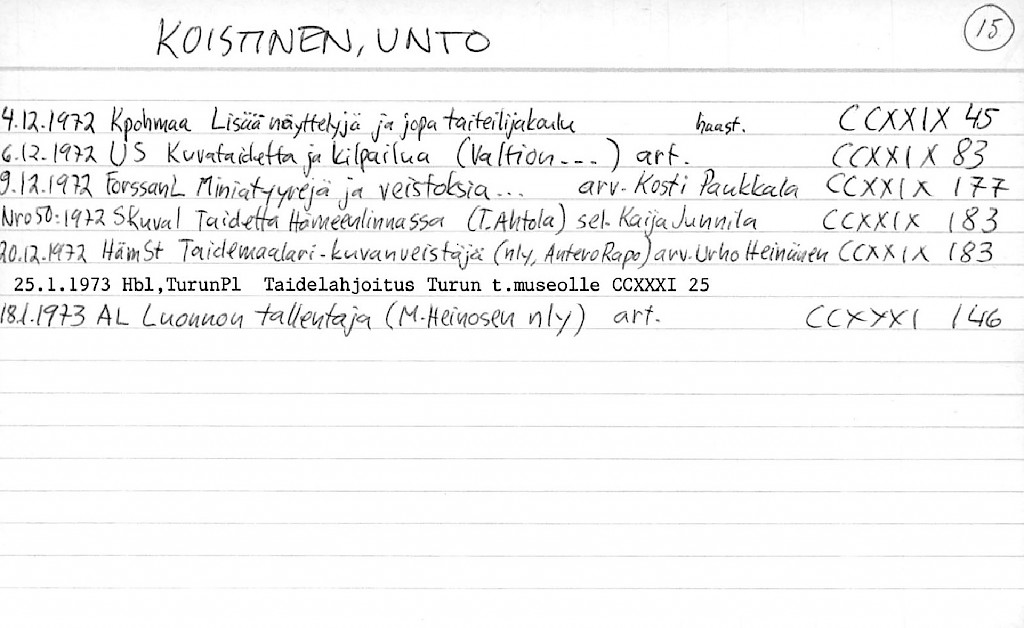 KOISTINEN, UNTO 15
4.12.1972 Kpohmaa Lisää näyttelyjä ja jopa taiteilijakoulu haast. CCXXIX 45
6.12.1972 US Kuvataidetta ja kilpailua (Valtion...) art. CCXXIX 83
9.12.1972 ForssanL Miniatyyrejä ja veistoksia... arv. Kosti Paukkala CCXXIX 177
Nro 50:1972 SKuval Taidetta Hämeenlinnassa (T. Ahtola) sel. Kaija Junnila CCXXIX 183
20.12.1972 HämSt Taidemaalari-kuvanveistäjä (nly, Antero Rapo) arv. Urho Heinänen CCXXIX 183
25.1.1973 Hbl,TurunPl Taidelahjoitus Turun t.museolle CCXXXI 25
18.1.1973 AL Luonnon tallentaja (M.Heinosen nly) art. CCXXXI 146